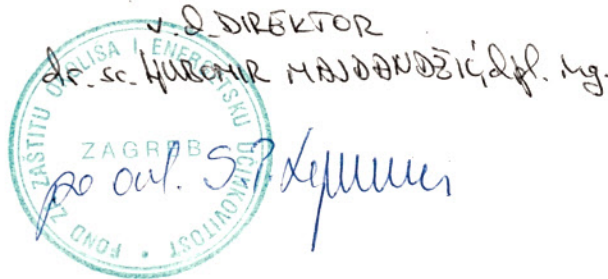 v.d. DIREKTOR
dr. sc. LJUBOMIR MAJDANDŽIĆ, dipl. ing.
FOND ZA ZAŠTITU OKOLIŠA I ENERGETSKU UČINKOVITOST
ZAGREB
po ovl. S.P.